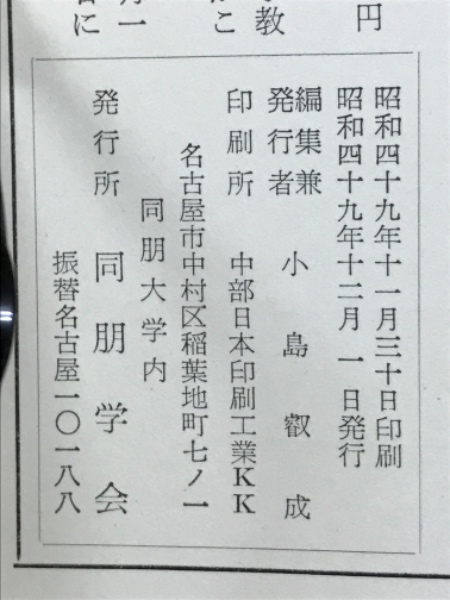 円
教
こ
一
に
昭和四十九年十一月三十日印刷
昭和四十九年十二月一日発行
編集兼
発行者 小島叡成
印刷所 中部日本印刷工業KK
名古屋市中村区稲葉地町七ノ一
同朋大学内
発行所 同朋学会
振替名古屋一〇一八八